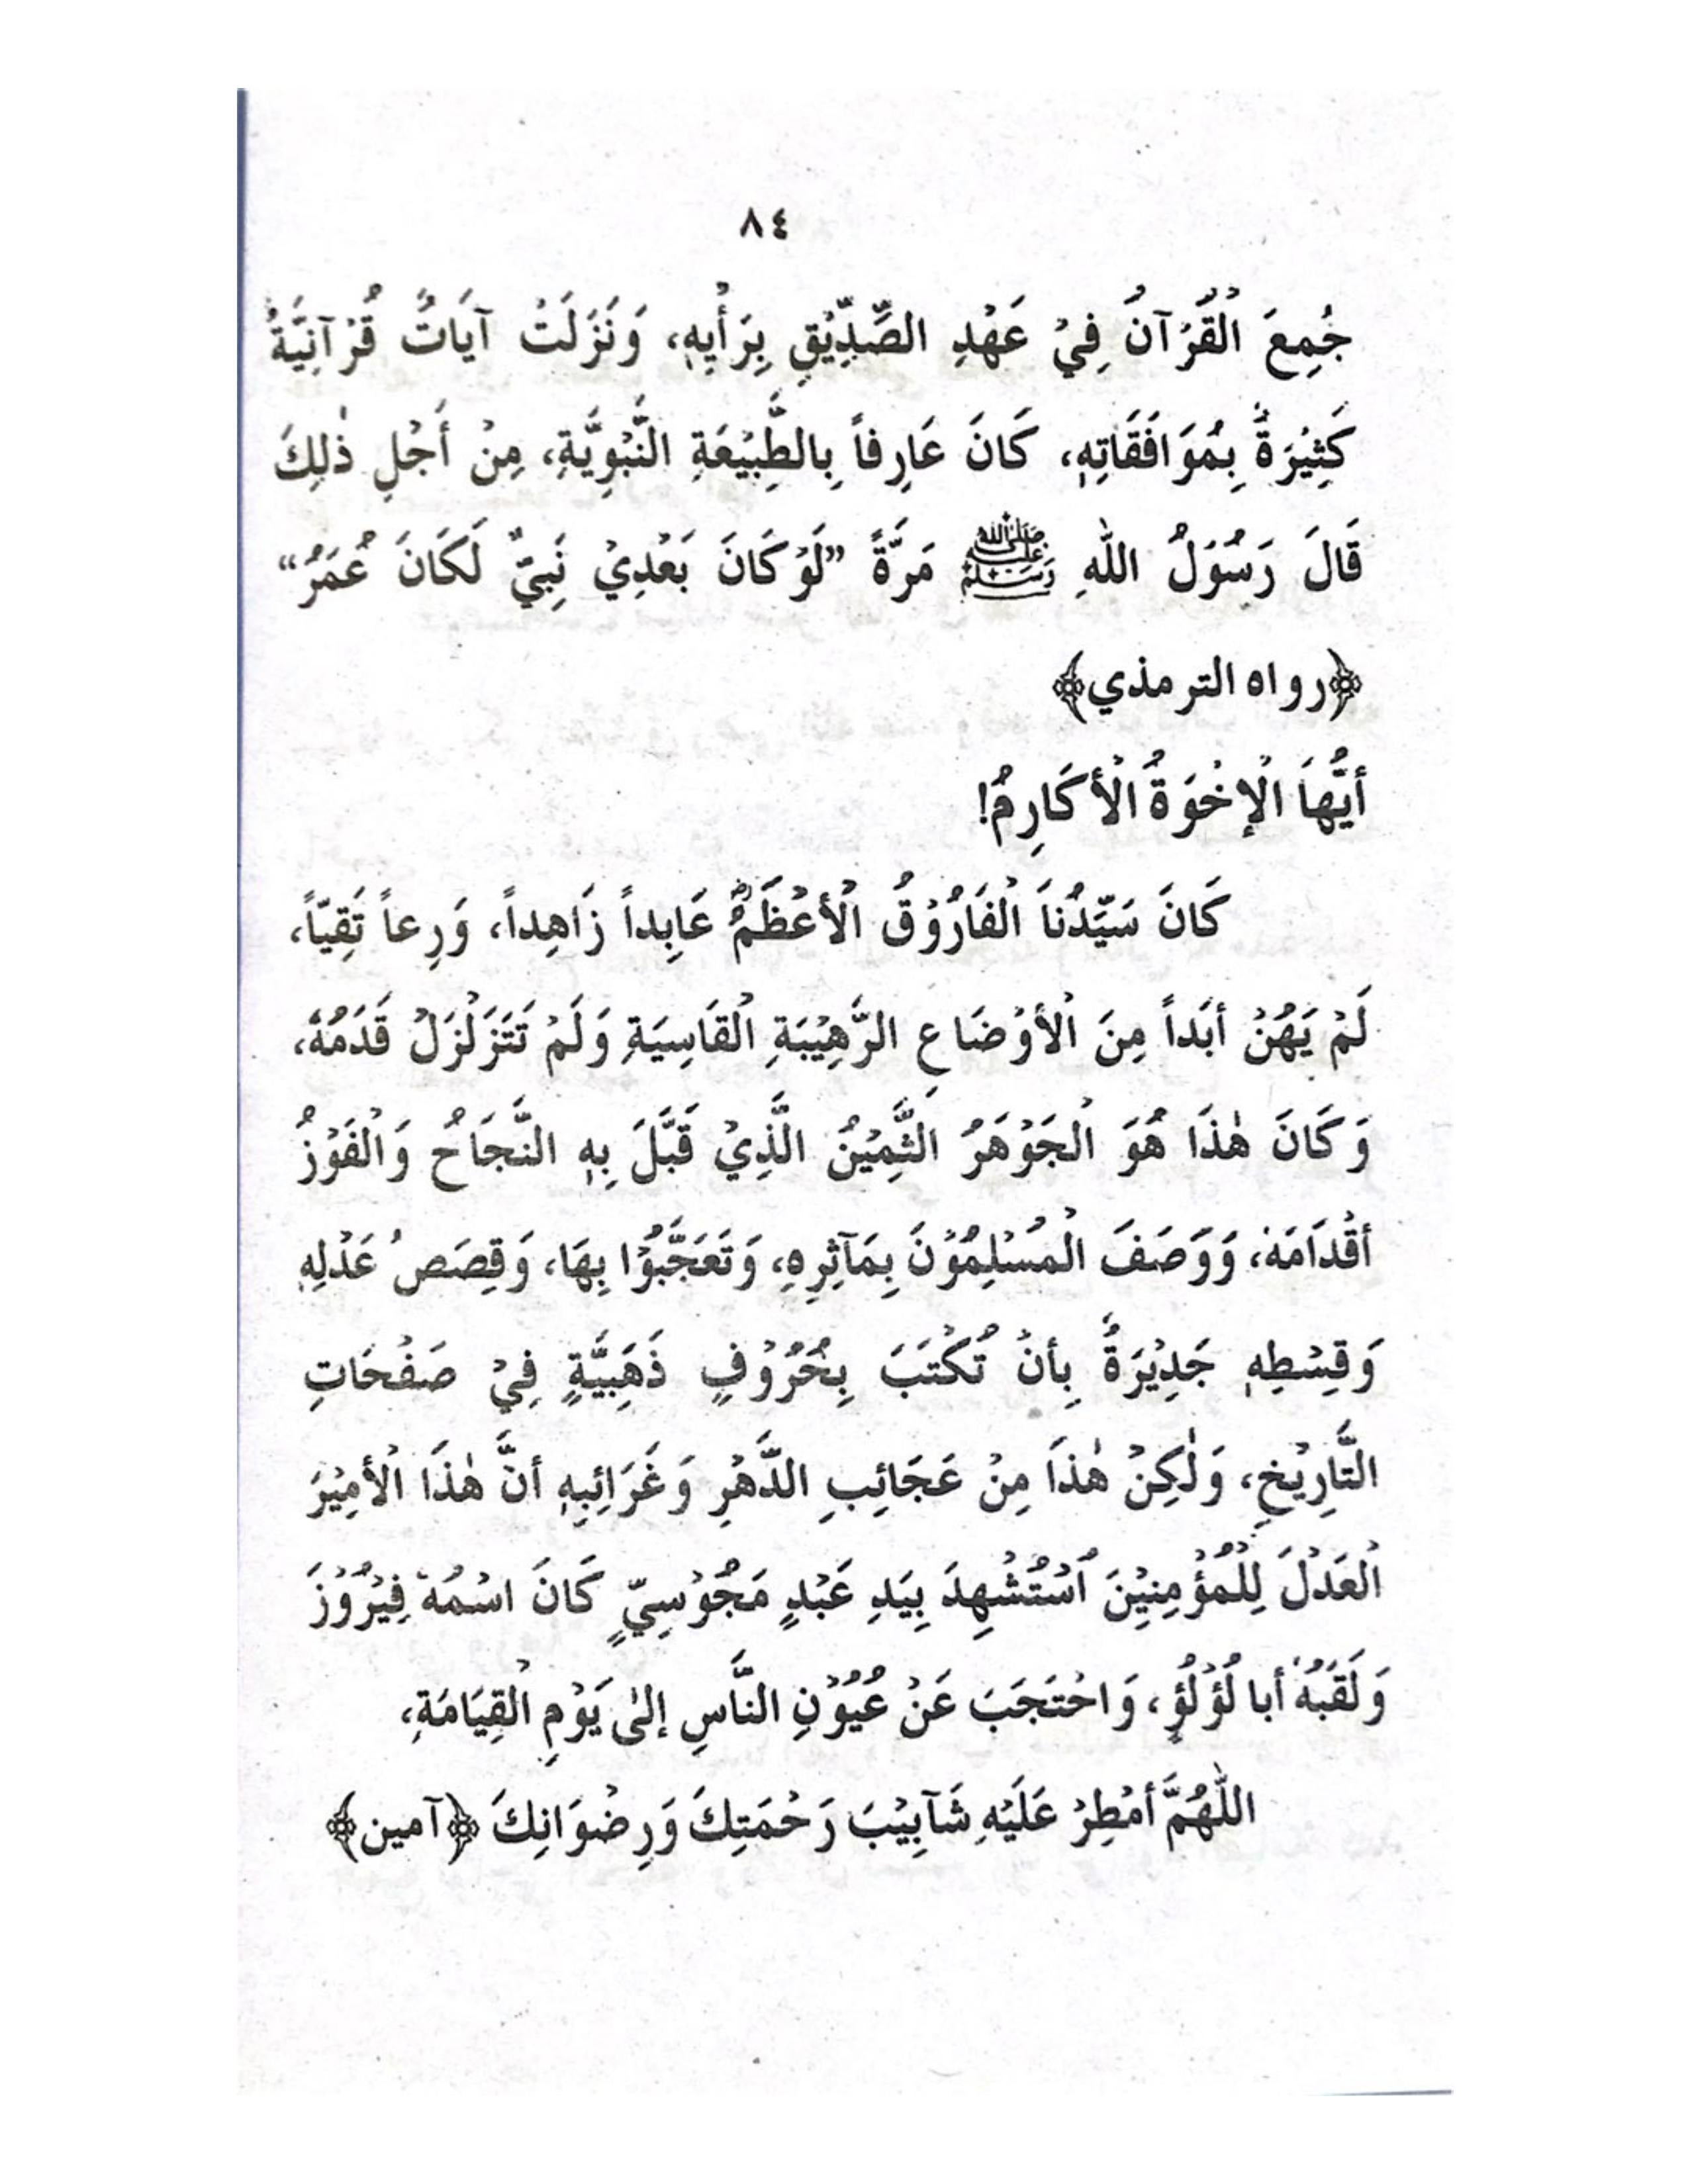 ٨٤
جُمِعَ الْقُرْآنُ فِيْ عَهْدِ الصِّدِّيْقِ بِرَأْيِهٖ، وَنَزَلَتْ آيَاتٌ قُرْآنِيَّةٌ
كَثِيْرَةٌ بِمُوَافَقَاتِهٖ، كَانَ عَارِفاً بِالطَّبِيْعَةِ النَّبْوِيَّةِ، مِنْ أَجْلِ ذٰلِكَ
قَالَ رَسُوْلُ اللهِ ﷺ مَرَّةً ”لَوْ كَانَ بَعْدِيْ نَبِيٌّ لَكَانَ عُمَرُ“
﴿رواه الترمذي﴾
أيُّهاَ الْإخْوَةُ الْأكَارِمُ!
كَانَ سَيِّدُناَ الْفَارُوْقُ الْأعْظَمُؓ عَابِداً زَاهِداً، وَرِعاً تَقِيّاً،
لَمْ يَهُنْ أبَداً مِنَ الْأوْضَاعِ الرَّهِيْبَةِ الْقَاسِيَةِ وَلَمْ تَتَزَلْزَلْ قَدَمُهٗ،
وَكَانَ هٰذَا هُوَ الْجَوْهَرُ الثَّمِيْنُ الَّذِيْ قَبَّلَ بِهٖ النَّجَاحُ وَالْفَوْزُ
أقْدَامَهٗ، وَوَصَفَ الْمُسْلِمُوْنَ بِمَآثِرِهِ، وَتَعَجَّبُوْا بِهَا، وَقِصَصُ عَدْلِهٖ
وَقِسْطِهٖ جَدِيْرَةٌ بِأنْ تُكْتَبَ بِحُرُوْفٍ ذَهَبِيَّةٍ فِيْ صَفْحَاتِ
التَّارِيْخِ، وَلٰكِنْ هٰذَا مِنْ عَجَائِبِ الدَّهْرِ وَغَرَائِبِهٖ أنَّ هٰذَا الْأمِيْرَ
الْعَدْلَ لِلْمُؤْمِنِيْنَ اُسْتُشْهِدَ بِيَدِ عَبْدٍ مَجُوْسِيٍّ كَانَ اسْمُهٗ فِيْرُوْزَ
وَلَقَبُهٗ أبا لُؤْلُؤٍ، وَاحْتَجَبَ عَنْ عُيُوْنِ النَّاسِ إلىٰ يَوْمِ الْقِيَامَةِ،
اللّٰهُمَّ أمْطِرْ عَلَيْهِ شَآبِيْبَ رَحْمَتِكَ وَرِضْوَانِكَ ﴿آمين﴾